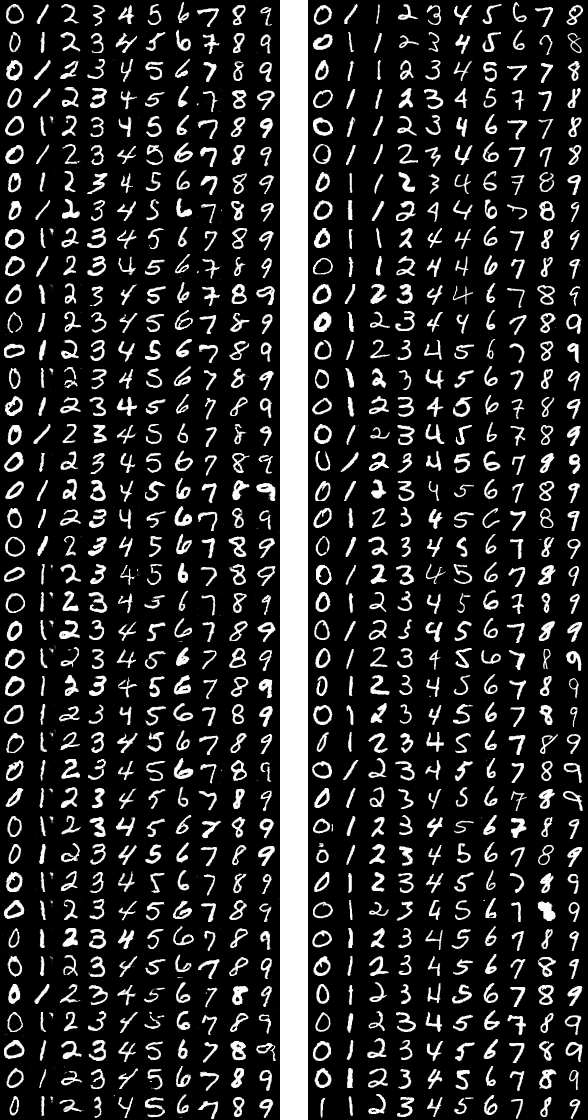 0 1 2 3 4 5 6 7 8 9
0 1 2 3 4 5 6 7 8 9
0 1 2 3 4 5 6 7 8 9
0 1 2 3 4 5 6 7 8 9
0 1 2 3 4 5 6 7 8 9
0 1 2 3 4 5 6 7 8 9
0 1 2 3 4 5 6 7 8 9
0 1 2 3 4 5 6 7 8 9
0 1 2 3 4 5 6 7 8 9
0 1 2 3 4 5 6 7 8 9
0 1 2 3 4 5 6 7 8 9
0 1 2 3 4 5 6 7 8 9
0 1 2 3 4 5 6 7 8 9
0 1 2 3 4 5 6 7 8 9
0 1 2 3 4 5 6 7 8 9
0 1 2 3 4 5 6 7 8 9
0 1 2 3 4 5 6 7 8 9
0 1 2 3 4 5 6 7 8 9
0 1 2 3 4 5 6 7 8 9
0 1 2 3 4 5 6 7 8 9
0 1 2 3 4 5 6 7 8 9
0 1 2 3 4 5 6 7 8 9
0 1 2 3 4 5 6 7 8 9
0 1 2 3 4 5 6 7 8 9
0 1 2 3 4 5 6 7 8 9
0 1 2 3 4 5 6 7 8 9
0 1 2 3 4 5 6 7 8 9
0 1 2 3 4 5 6 7 8 9
0 1 2 3 4 5 6 7 8 9
0 1 2 3 4 5 6 7 8 9
0 1 2 3 4 5 6 7 8 9
0 1 2 3 4 5 6 7 8 9
0 1 2 3 4 5 6 7 8 9
0 1 2 3 4 5 6 7 8 9
0 1 2 3 4 5 6 7 8 9
0 1 2 3 4 5 6 7 8 9
0 1 2 3 4 5 6 7 8 9
0 1 2 3 4 5 6 7 8 9
0 1 2 3 4 5 6 7 8 9
0 1 2 3 4 5 6 7 8 9
0 1 1 2 3 4 5 6 7 8
0 1 1 2 3 4 5 6 7 8
0 1 1 2 3 4 5 7 7 8
0 1 1 2 3 4 5 7 7 8
0 1 1 2 3 4 6 7 7 8
0 1 1 2 3 4 6 7 7 8
0 1 1 2 3 4 6 7 8 9
0 1 1 2 4 4 6 7 8 9
0 1 1 2 4 4 6 7 8 9
0 1 1 2 4 4 6 7 8 9
0 1 2 3 4 4 6 7 8 9
0 1 2 3 4 4 6 7 8 9
0 1 2 3 4 5 6 7 8 9
0 1 2 3 4 5 6 7 8 9
0 1 2 3 4 5 6 7 8 9
0 1 2 3 4 5 6 7 8 9
0 1 2 3 4 5 6 7 8 9
0 1 2 3 4 5 6 7 8 9
0 1 2 3 4 5 6 7 8 9
0 1 2 3 4 5 6 7 8 9
0 1 2 3 4 5 6 7 8 9
0 1 2 3 4 5 6 7 8 9
0 1 2 3 4 5 6 7 8 9
0 1 2 3 4 5 6 7 8 9
0 1 2 3 4 5 6 7 8 9
0 1 2 3 4 5 6 7 8 9
0 1 2 3 4 5 6 7 8 9
0 1 2 3 4 5 6 7 8 9
0 1 2 3 4 5 6 7 8 9
0 1 2 3 4 5 6 7 8 9
0 1 2 3 4 5 6 7 8 9
0 1 2 3 4 5 6 7 8 9
0 1 2 3 4 5 6 7 9
0 1 2 3 4 5 6 7 8 9
0 1 2 3 4 5 6 7 8 9
0 1 2 3 4 5 6 7 8 9
0 1 2 3 4 5 6 7 8 9
0 1 2 3 4 5 6 7 8 9
0 1 2 3 4 5 6 7 8 9
1 1 2 3 4 5 6 7 8 9